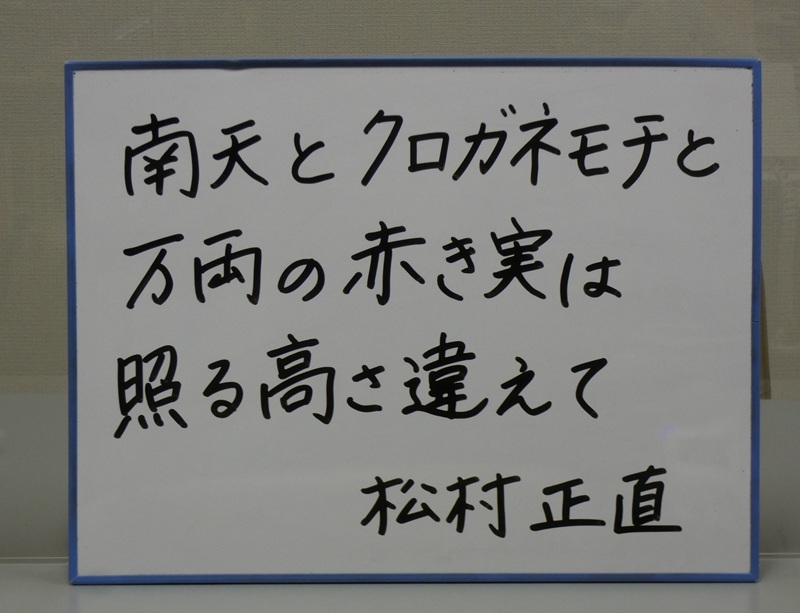 南天とクロガネモチと
万両の赤き実は
照る高さ違えて
松村正直